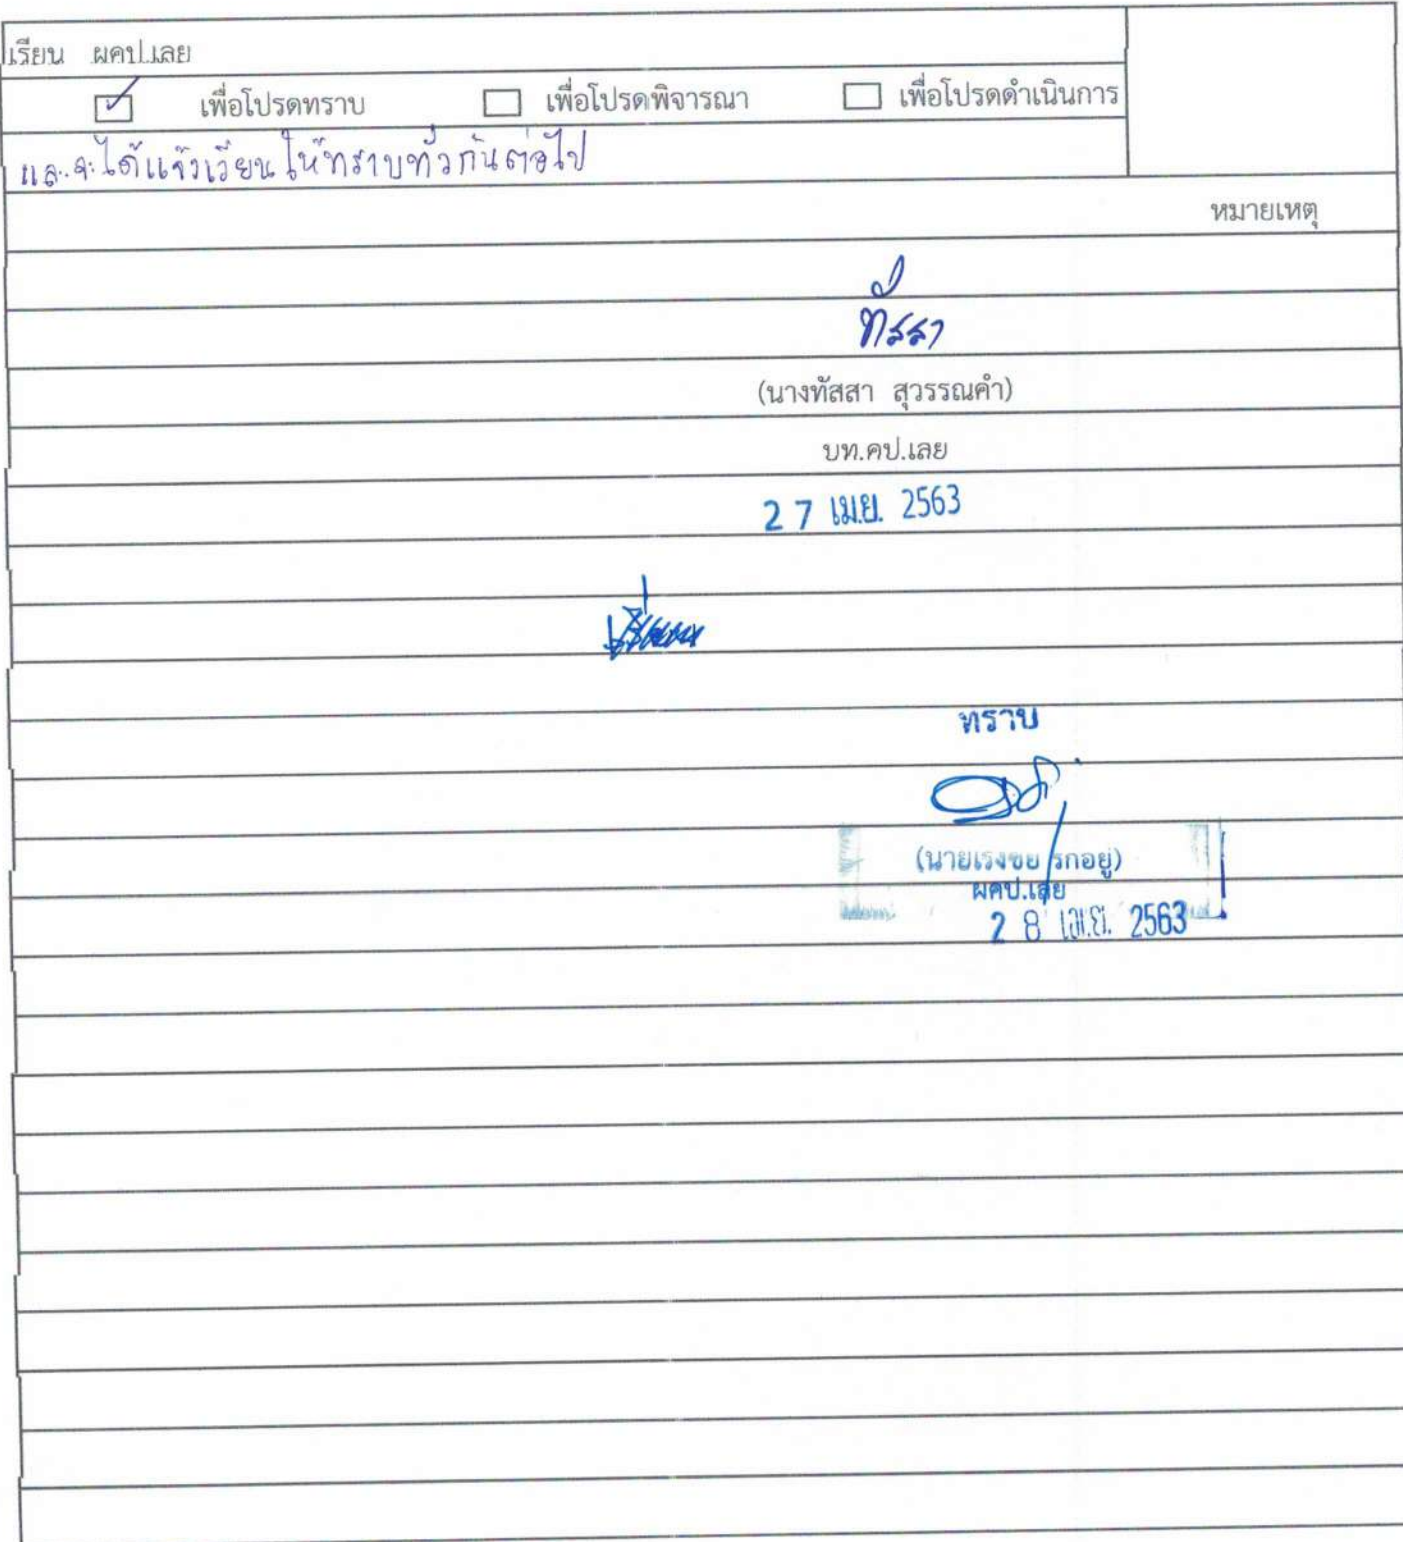 เรียน ผคป.เลย
☑ เพื่อโปรดทราบ ☐ เพื่อโปรดพิจารณา ☐ เพื่อโปรดดำเนินการ
และจะได้แจ้งเวียนให้ทราบทั่วกันต่อไป
หมายเหตุ
ทัสสา
(นางทัสสา สุวรรณคำ)
บท.คป.เลย
27 เม.ย. 2563
ทราบ
ผคป.เลย
28 เม.ย. 2563